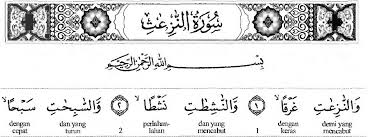 سُورَةُ النّٰزِعٰتِ
بِسْمِ اللّٰهِ الرَّحْمٰنِ الرَّحِيْمِ
وَالنّٰزِعٰتِ غَرْقًا ١ وَّالنّٰشِطٰتِ نَشْطًا ٢ وَّالسّٰبِحٰتِ سَبْحًا
demi yang mencabut dengan keras 1 dan yang mencabut perlahan-lahan 2 dan yang turun dengan cepat